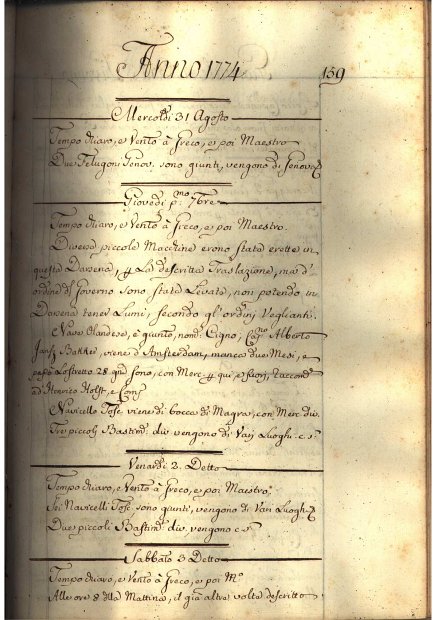 Anno 1774
159
Mercoldì 31 Agosto
Tempo chiaro, e Vento à Greco, e poi Maestro
Due Felugoni Genov. sono giunti, vengono di Genova
Giovedì pmo 7bre
Tempo chiaro, e Vento à Greco, e poi Maestro.
Diverse piccole Macchine erono state erette in
questa Darsena, La descritta Traslazione, ma d'
ordine di Governo sono state Levate, non potendo in
Darsena tener Lumi, secondo gl'ordini Veglianti.
Nave Olandese, è giunto, nomd. Cigno, Capno Alberto
Jansz Bakker, viene d'Amsterdam, manca due Mesi, e
28 sono, con Merc. qui, e fuori, Raccomd
ad Henrico Holst, e Comp
Navicello Tosc. viene di bocca di Magra, con Merc. div.
Tre piccoli Bastimti div. vengono di Varj Luoghi. c. s.
Venerdì 2. Detto
Tempo chiaro, e Vento à Greco, e poi Maestro.
Sei Navicelli Tosc. sono giunti, vengono di Varj Luoghi
Due piccoli Bastimti div. vengono c. s.
Sabbato 3 Detto
Tempo chiaro, e Vento à Greco, e poi Mo
Alle ore 8 della Mattina, il già altre volte descritto